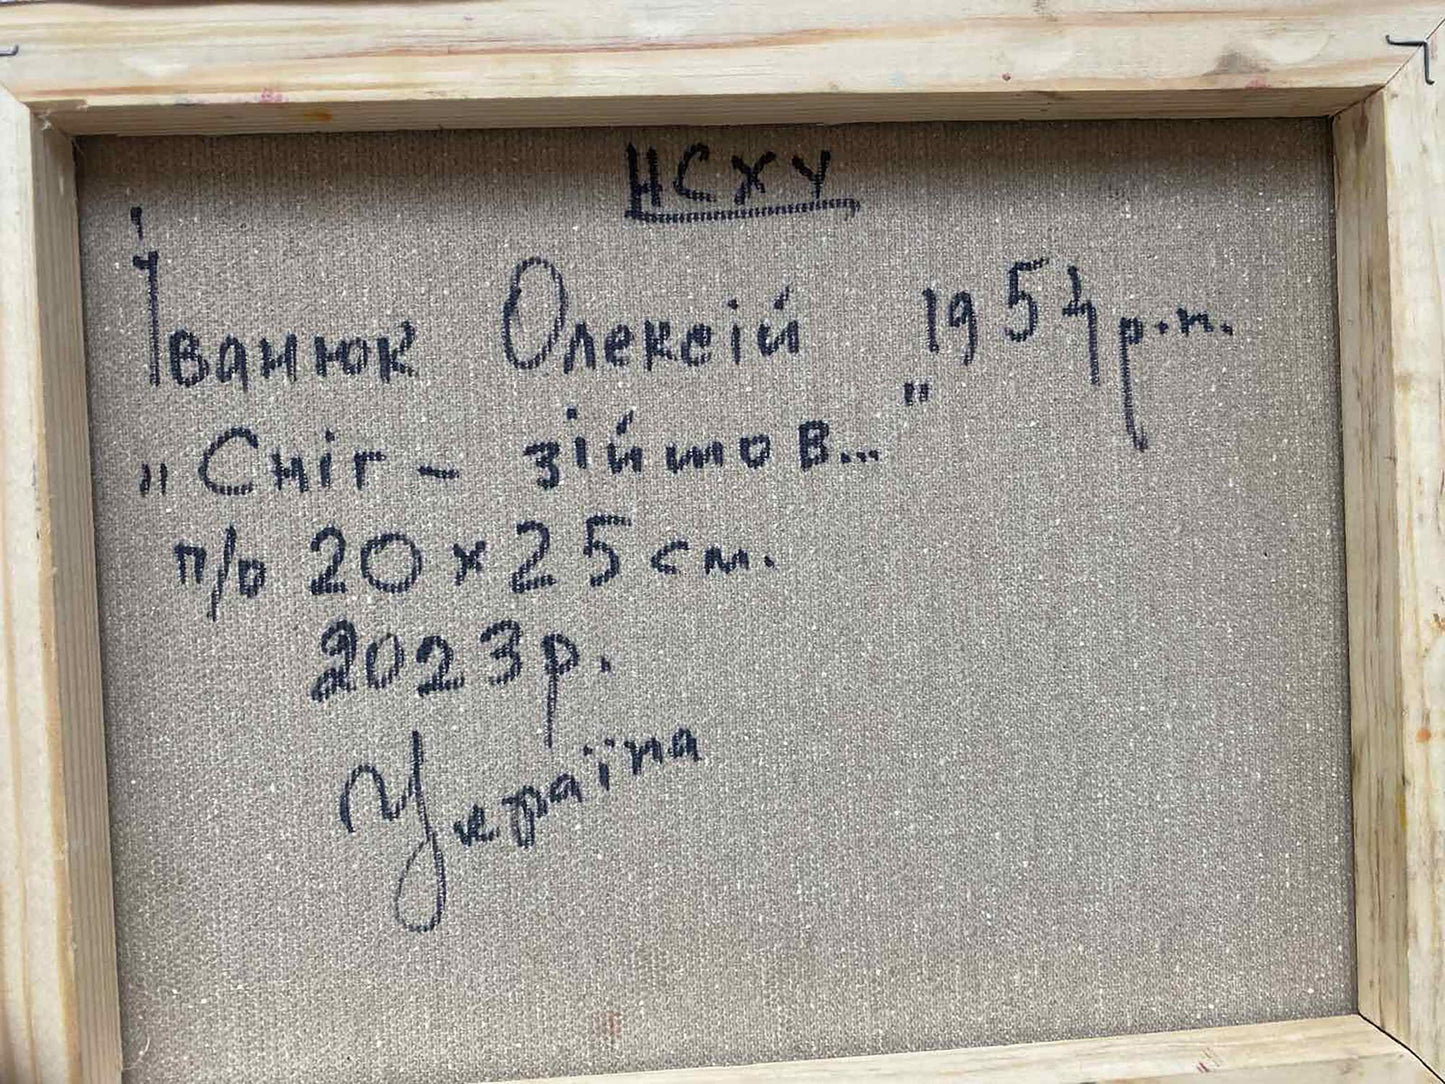 НСХУ
Іванюк Олексій 1954 р.н.
"Сніг - зійшов..."
п/о 20 х 25 см.
2023 р.
Україна